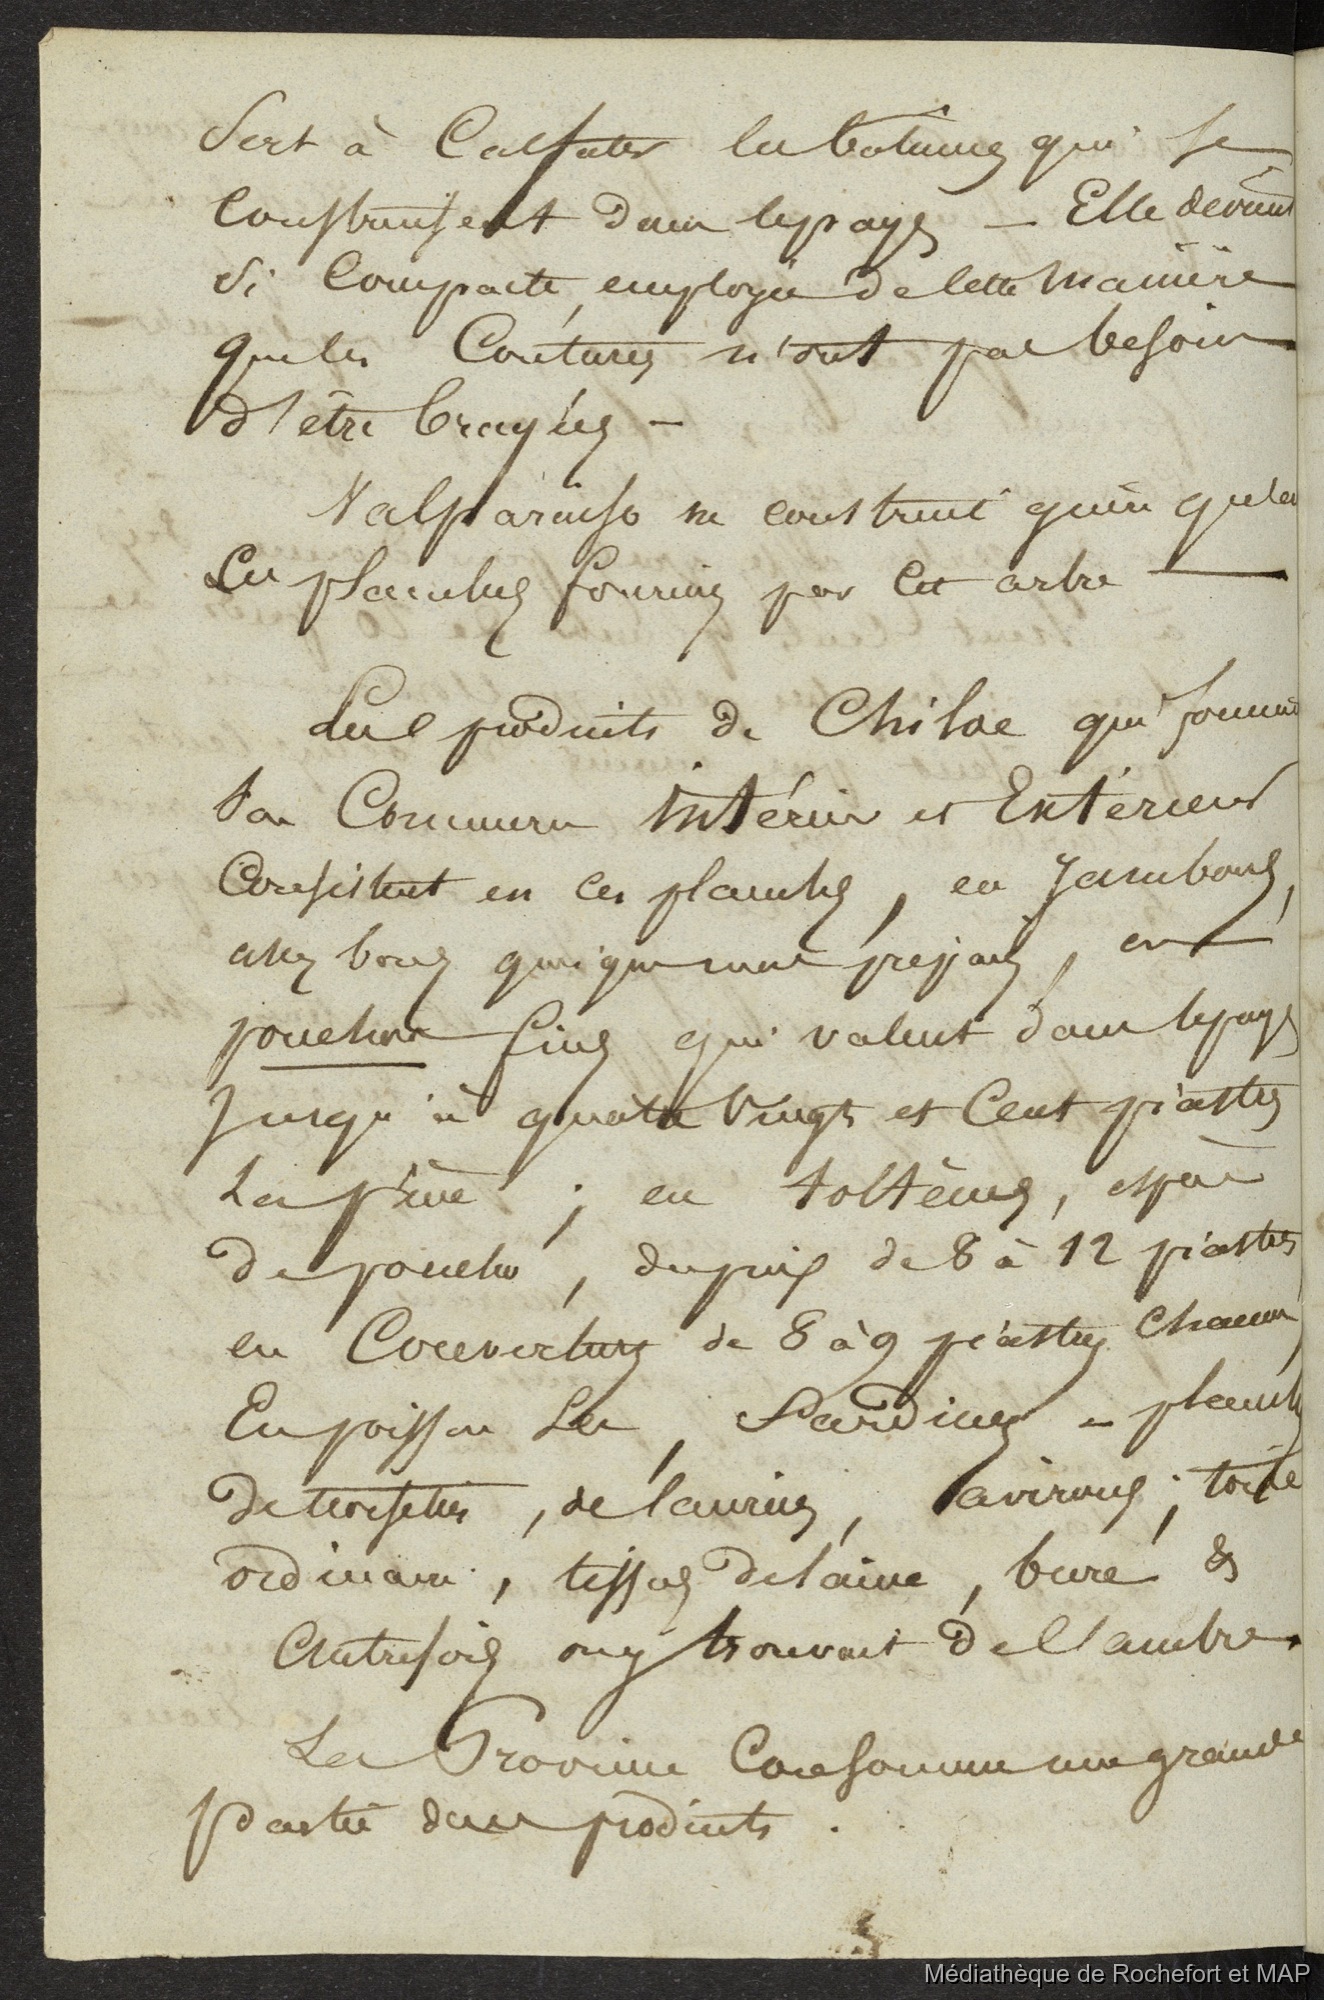 Sert à Calfater les batimens qui se
construisent dans le pays — Elle devient
si compacte, employée de cette manière
que les Coutures n'ont pas besoin
d'être brayées —
Valparaiso ne construit guère qu'en
Les planches fournies par Cet arbre —
Les produits de Chiloe qui forment
son Commerce intérieur et Extérieur
Consistent en ces planches, en Jambons,
assez bons quoique mal préparés, en
ponchos fins qui valent dans le pays
Jusqu'à quatre Vingts et Cent piastres
La pièce ; en toltènes, espèce
de poncho, depuis de 8 à 12 piastres
en Couvertures de 8 à 9 piastres chacune
En poisson sec, Sardines – planches
de, de lauriers, avirons ; toile
ordinaire, tissus de laine, bure &
Autrefois on y trouvait de l'ambre.
La Province Consomme une grande
partie de ces produits .
Médiathèque de Rochefort et MAP